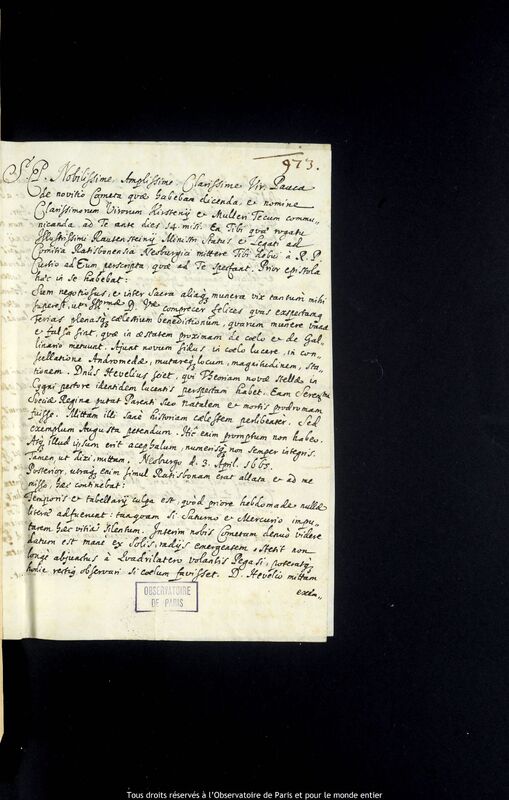 973.
S. P. Nobilissime, Amplissime, Clarissime Vir. Pauca
de novitio Cometa quæ habebam dicenda, et nomine
Clarissimorum Virorum Kirsteny et Mulleri Tecum commu-
nicanda ad Te ante dies 14 misi. Ea Tibi quæ rogatu
Illustrissimi Rautensteiny Ministri Status et Legati ad
Comitia Ratisbonensia Neoburgici mittere Tibi debui à R. P.
Curtio ad Eum perscripta quæ ad Te spectant. Prior epistola
hæc in se habebat:
Sum negotiosus, et inter Sacra aliaq munera vix tantum mihi
superest, ut comprecer felices quas exspectamq
ferias plenasq cælestium benedictionum, quarum munere vana
et falsa sint, quæ in æstatem proximam de cœlo et de Gal-
linario metuunt. Ajunt novum sidus in cœlo lucere, in con-
stellatione Andromedæ, mutareq locum, magnitudinem, sta-
tionem. Dnus Hevelius sciet, qui Theoriam novæ stellæ in
Cygni pectore identidem lucentis perspectam habet. Eam Sereniss
Sueciæ Regina putat Parenti suo natalem et mortis prodromam
fuisse. Mittam illi sane historiam cælestem perlibenter, Sed
exemplum Augusta petendum. Hic enim promptum non habeo.
Atq illud ipsum erit acephalum, numerisq non semper integris.
Tamen, ut dixi, mittam. Neoburgo d. 3. April. 1665.
Posterior, utraq enim simul Ratisbonam erat allata, et ad me
missa, hæc continebat:
Temporis et tabellarij culpa est, quòd priore hebdomade nullæ
literæ adfuerunt: tanquam si Saturno et Mercurio impu-
tarem hæc vitia silentum. Interim nobis Cometam denuò videre
datum est manè ex Solis radijs emergentem. Stetit non
longè abjunctus à Quadrilatero volantis Pegasi, poteratq
hodie rectiq observari si cœlum favisset. D. Hevelio mittam
exem-
OBSERVATOIRE
DE PARIS
Tous droits réservés à l'Observatoire de Paris et pour le monde entier